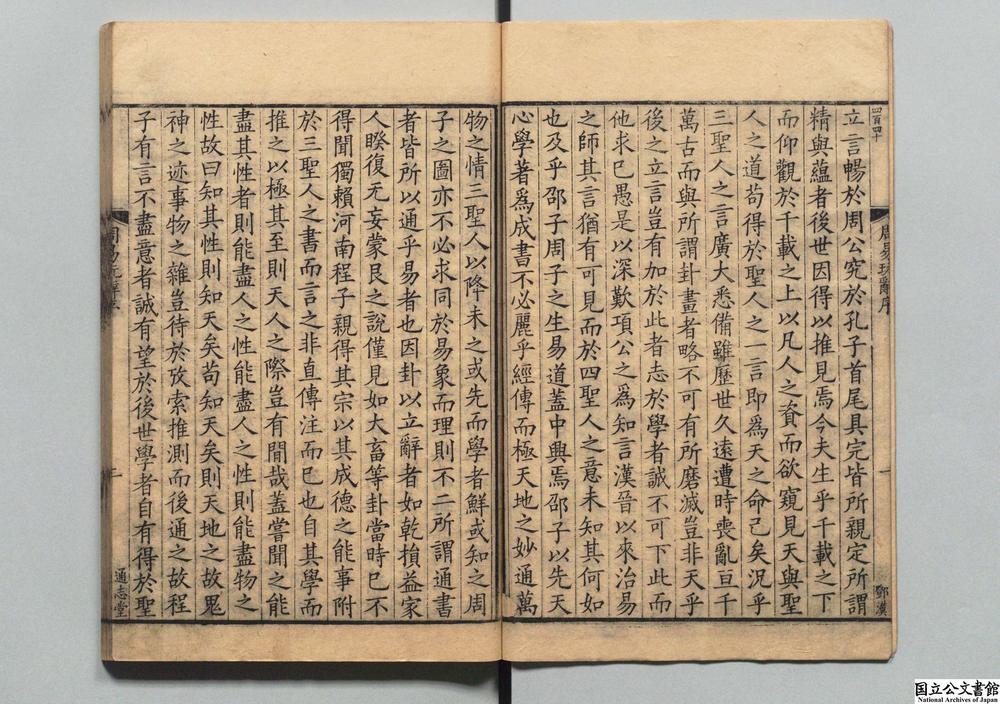 四百四十
周易玩辭序
一
鄧漢
立言暢於周公究於孔子首尾具完皆所親定所謂
精與蘊者後世因得以推見焉今夫生乎千載之下
而仰觀於千載之上以凡人之資而欲窺見天與聖
人之道苟得於聖人之一言即為天之命已矣況乎
三聖人之言廣大悉備雖歷世久遠遭時喪亂亘千
萬古而與所謂卦畫者略不可有所磨滅豈非天乎
後之立言豈有加於此者志於學者誠不可下此而
他求已愚是以深歎項公之為知言漢晉以來治易
之師其言猶有可見而於四聖人之意未知其何如
也及乎邵子周子之生易道蓋中興焉邵子以先天
心學著為成書不必麗乎經傳而極天地之妙通萬
物之情三聖人以降未之或先而學者鮮或知之周
子之圖亦不必求同於易象而理則不二所謂通書
者皆所以通乎易者也因卦以立辭者如乾損益家
人睽復无妄蒙艮之說僅見如大畜等卦當時已不
得聞獨賴河南程子親得其宗以其成德之能事附
於三聖人之書而言之非直傳注而已也自其學而
推之以極其至則天人之際豈有間哉蓋嘗聞之能
盡其性者則能盡人之性能盡人之性則能盡物之
性故曰知其性則知天矣苟知天矣則天地之故鬼
神之迹事物之雜豈待於攷索推測而後通之故程
子有言不盡意者誠有望於後世學者自有得於聖
通志堂
国立公文書館
National Archives of Japan